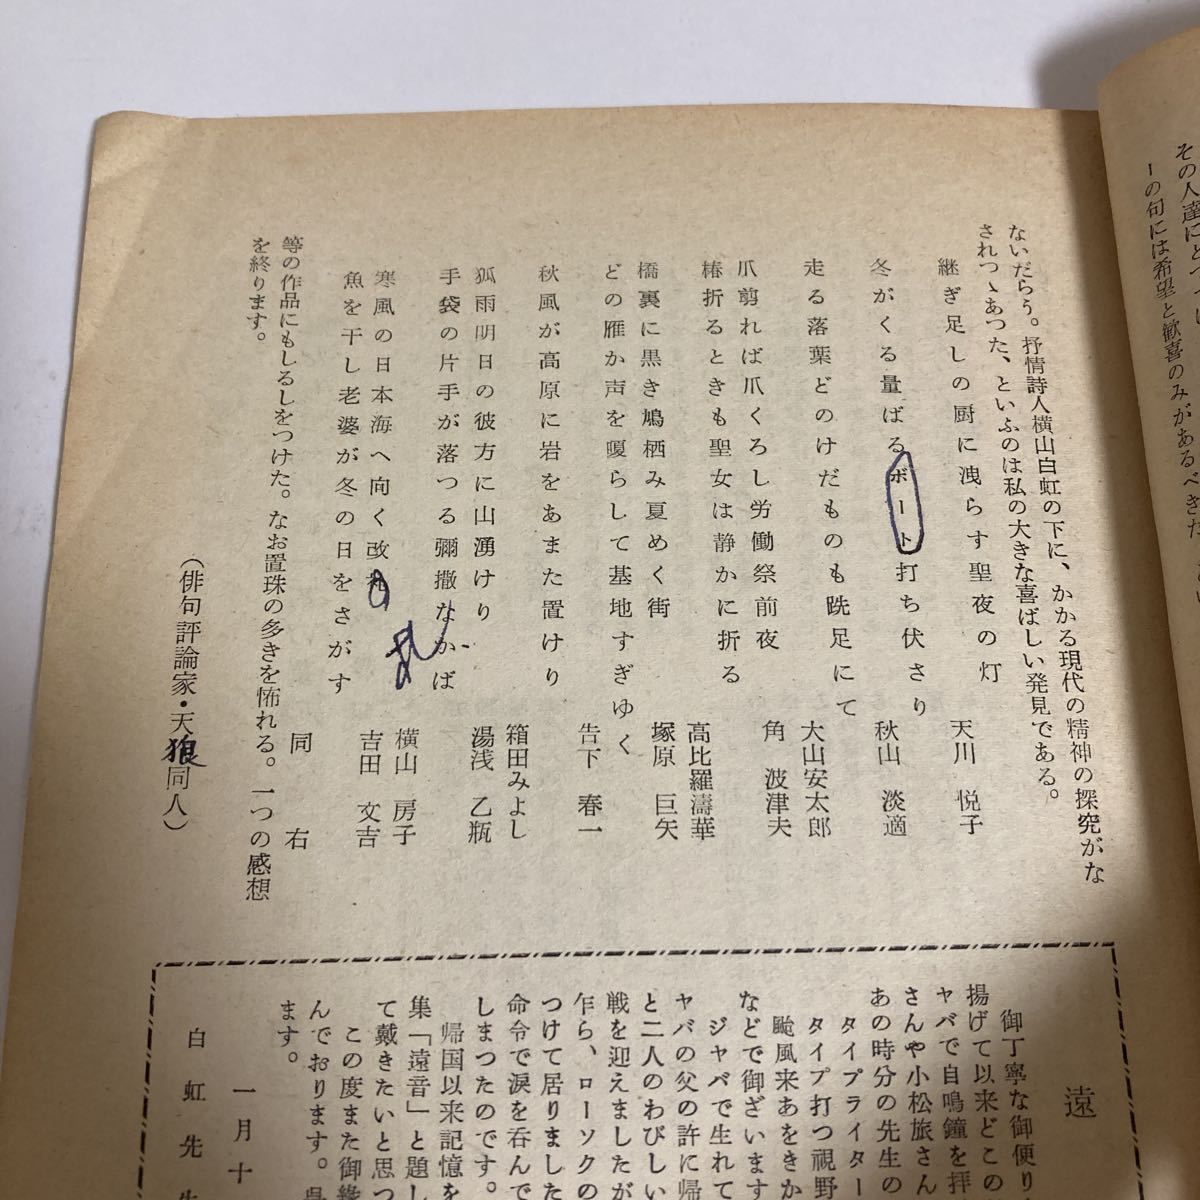 その人達にとつては
ーの句には希望と歓喜のみがあるべきだ
ないだらう。抒情詩人横山白虹の下に、かかる現代の精神の探究がな
されつゝあつた、といふのは私の大きな喜ばしい発見である。
継ぎ足しの厨に洩らす聖夜の灯 天川 悦子
冬がくる量ばるボート打ち伏さり 秋山 淡適
走る落葉どのけだものも跣足にて 大山安太郎
爪剪れば爪くろし労働祭前夜 角 波津夫
椿折るときも聖女は静かに折る 高比羅濤華
橋裏に黒き鳩栖み夏めく街 塚原 巨矢
どの雁か声を嗄らして基地すぎゆく 告下 春一
秋風が高原に岩をあまた置けり 箱田みよし
狐雨明日の彼方に山湧けり 湯浅 乙瓶
手袋の片手が落つる彌撒なかば 横山 房子
寒風の日本海へ向く改札 吉田 文吉
魚を干し老婆が冬の日をさがす 同 右
等の作品にもしるしをつけた。なお置珠の多きを怖れる。一つの感想
を終ります。
（俳句評論家・天狼同人）
遠
御丁寧な御便り
揚げて以来どこの
ャバで自鳴鐘を拝
さんや小松旅さん
あの時分の先生の
タイプライター
タイプ打つ視野
颱風来あをきか
などで御ざいます
ジャバで生れて
ャバの父の許に帰
と二人のわびしい
戦を迎えましたが
乍ら、ローソクの
つけて居りました
命令で涙を呑んで
しまつたのです。
帰国以来記憶を
集「遠音」と題し
て戴きたいと思つ
この度また御縁
んでおります。
ます。
一月十
白虹先生